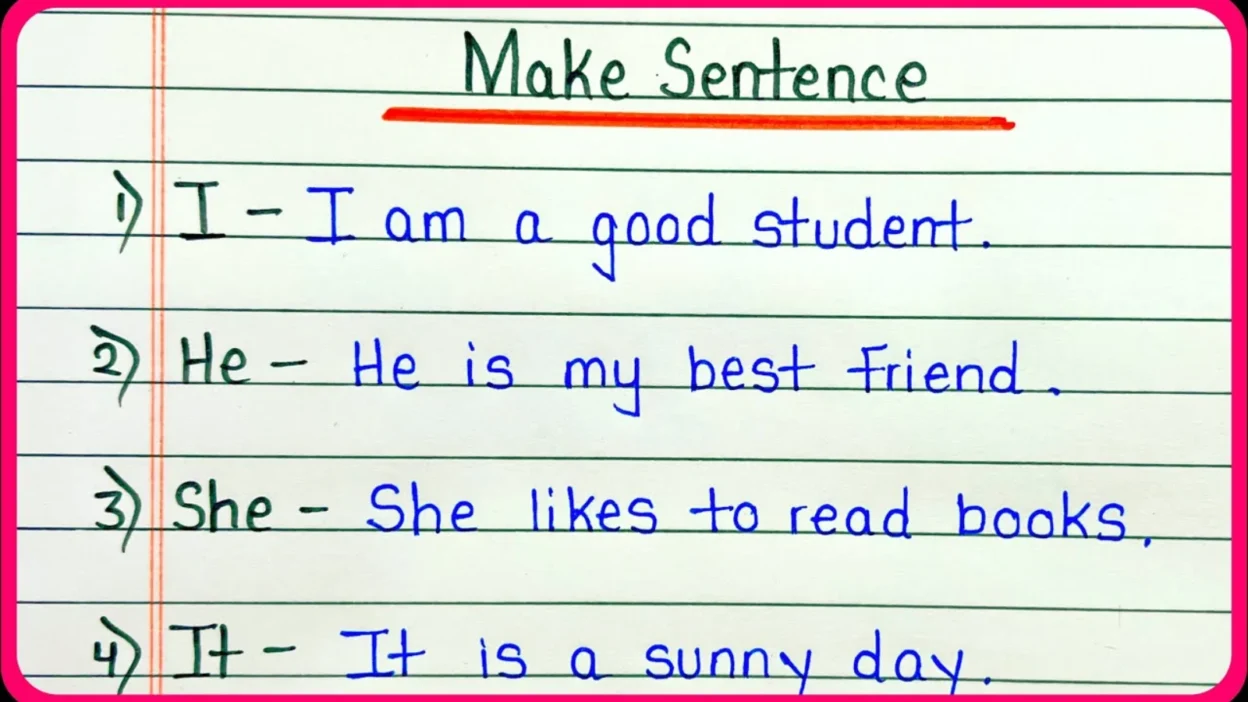 Make Sentence
1) I - I am a good student.
2) He - He is my best friend.
3) She - She likes to read books.
4) It - It is a sunny day.